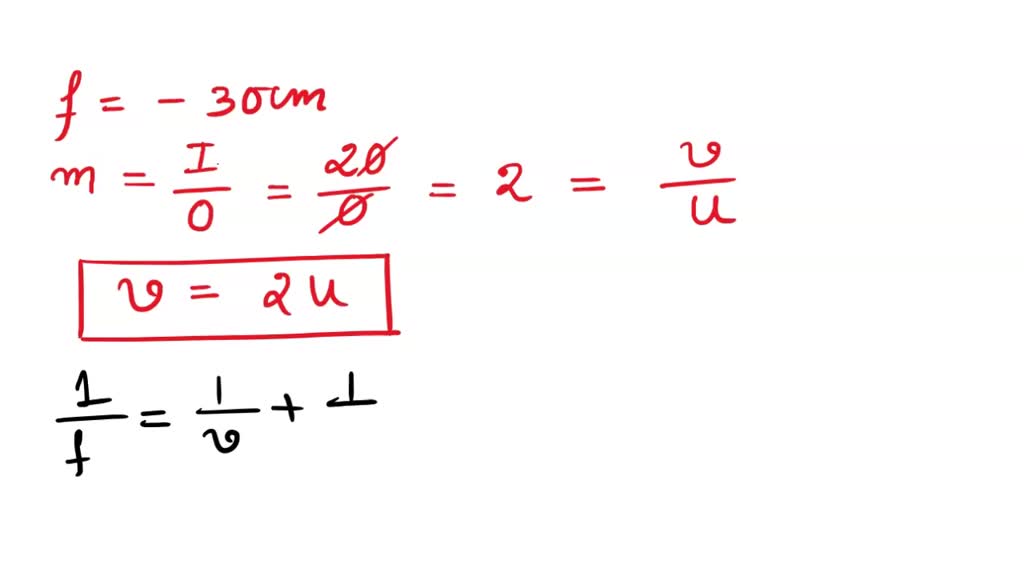 f = - 30cm
m = I/O = 20/0 = 2 = v/u
v = 2u
1/f = 1/v + 1